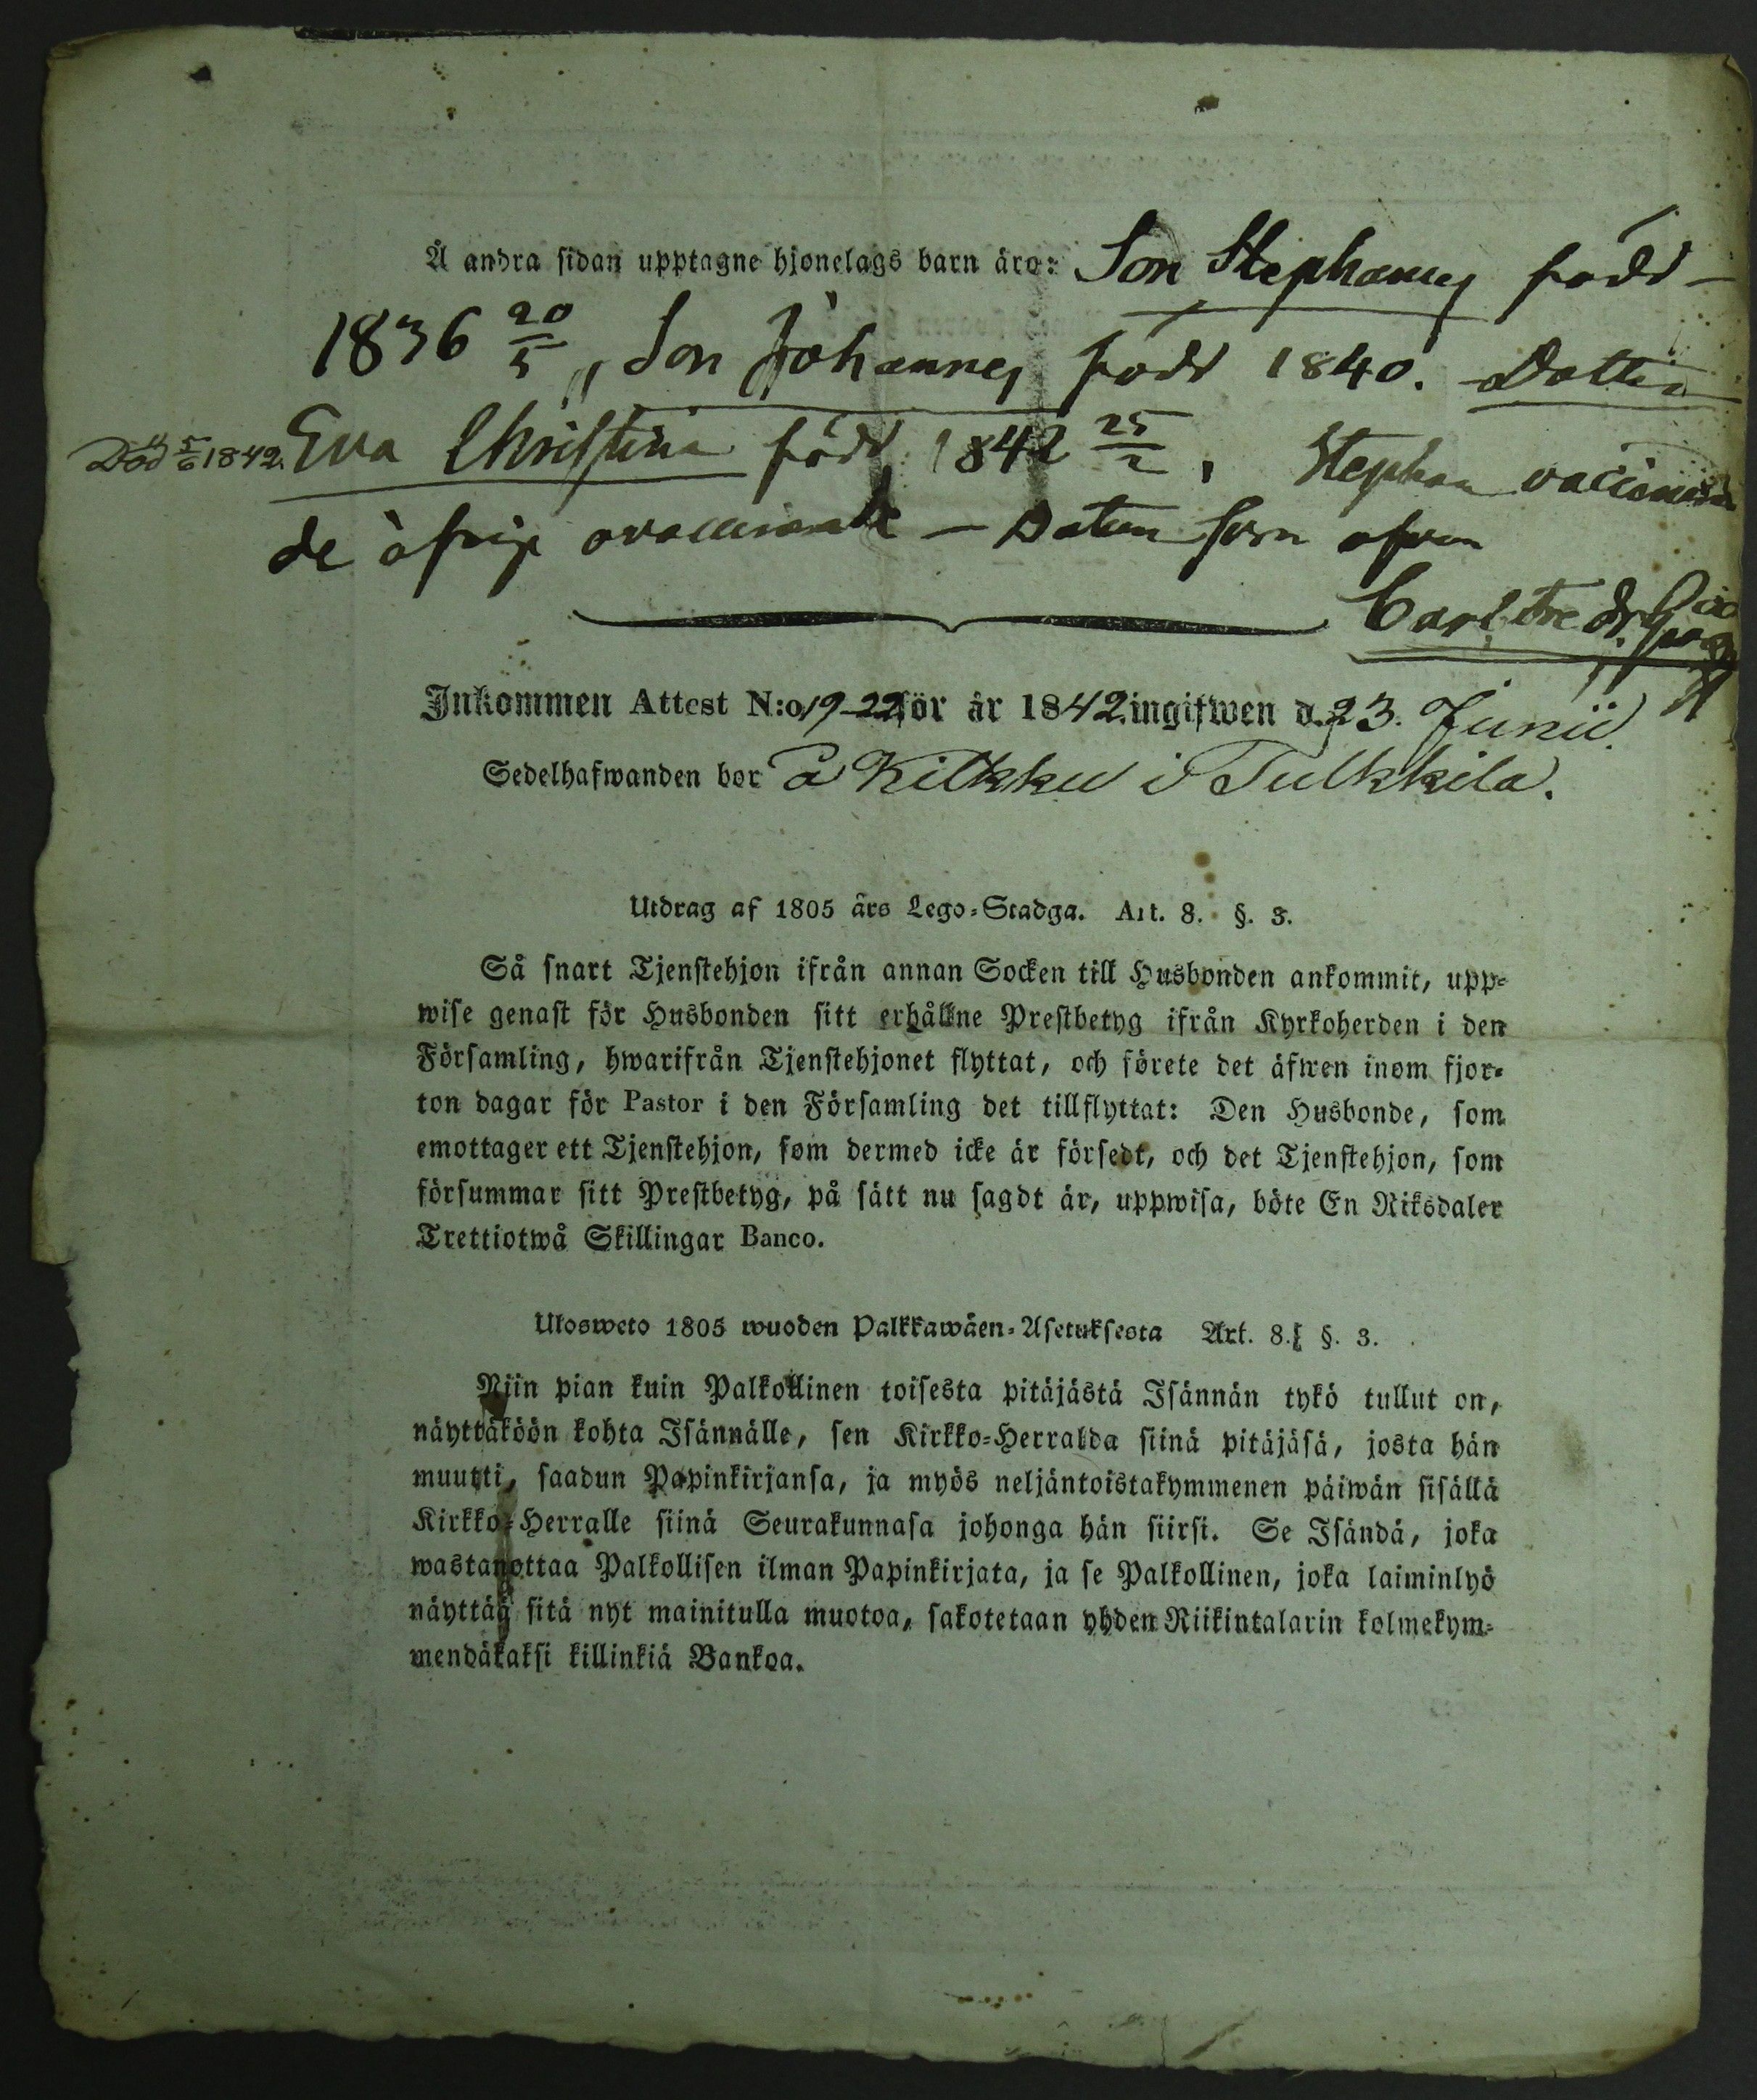 Å andra sidan upptagne hjonelags barn äro: Son Stephanus född
1836 20/5, Son Johannes född 1840. Dotter
Död 5/6 1842. Eva Christina född 1842 25/2, Stephan vaccinerad
de öfrige ovaccinerade — Datum som ofvan
Carl Fredr.
Inkommen Attest N:o 19-22 för år 1842 ingifwen d. 23. Junii.
Sedelhafwanden bor å Kilkku i Tulkkila.
Utdrag af 1805 års Lego-Stadga. Art. 8. §. 3.
Så snart Tjenstehjon ifrån annan Socken till Husbonden ankommit, upp-
wise genast för Husbonden sitt erhållne Prestbetyg ifrån Kyrkoherden i den
Församling, hwarifrån Tjenstehjonet flyttat, och förete det äfwen inom fjor-
ton dagar för Pastor i den Församling det tillflyttat: Den Husbonde, som
emottager ett Tjenstehjon, som dermed icke är försedt, och det Tjenstehjon, som
försummar sitt Prestbetyg, på sätt nu sagdt är, uppwisa, böte En Riksdaler
Trettiotwå Skillingar Banco.
Ulosweto 1805 wuoden Palkkawäen-Asetuksesta Art. 8. §. 3.
Niin pian kuin Palkollinen toisesta pitäjästä Isännän tykö tullut on,
näyttäköön kohta Isännälle, sen Kirkko-Herralda siinä pitäjäsä, josta hän
muutti, saadun Papinkirjansa, ja myös neljäntoistakymmenen päiwän sisällä
Kirkko-Herralle siinä Seurakunnasa johonga hän siirsi. Se Isändä, joka
wastanottaa Palkollisen ilman Papinkirjata, ja se Palkollinen, joka laiminlyö
näyttää sitä nyt mainitulla muotoa, sakotetaan yhden Riikintalarin kolmekym-
mendäkaksi killinkiä Bankoa.